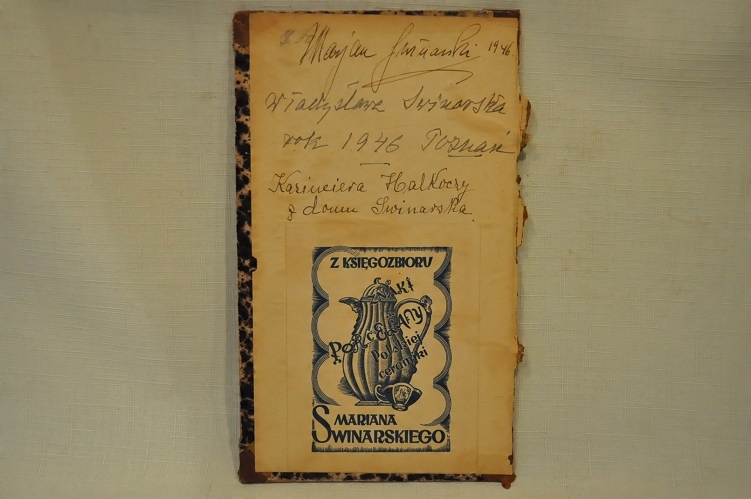 Marjan Swinarski 1946
Władysława Swinarska
rok 1946 Poznań
Kazimiera Halkoczy
z domu Swinarska.
Z KSIĘGOZBIORU
PORCELANY
Polskiej
ceramiki
MARIANA
SWINARSKIEGO